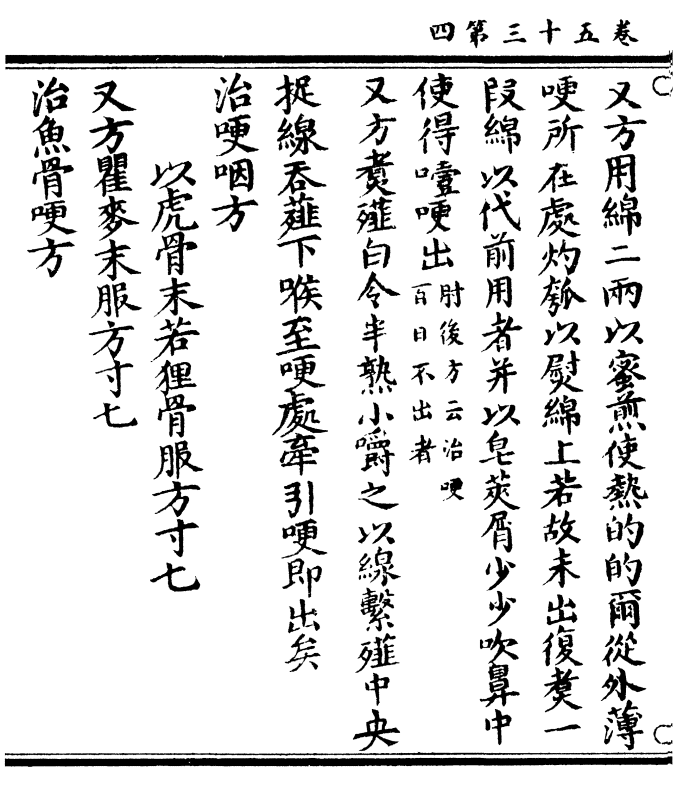 卷五十三第四
又方用綿二兩以蜜煎使熱的的爾從外薄
哽所在處灼瓠以熨綿上若故未出復煑一
段綿以代前用者并以皂莢屑少少吹鼻中
使得嚏哽出
肘後方云治哽
百日不出者
又方煑薤白令半熟小嚼之以線繫薤中央
捉線吞薤下喉至哽處牽引哽即出矣
治哽咽方
以虎骨末若狸骨服方寸七
又方瞿麥末服方寸七
治魚骨哽方